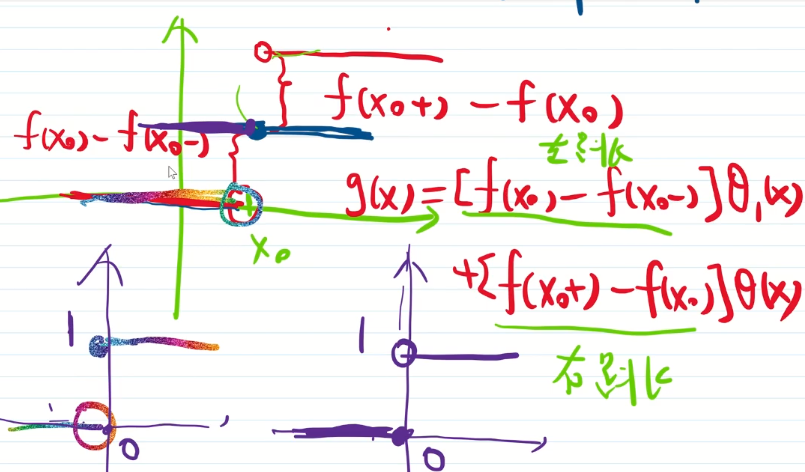 f(x₀+) - f(x₀)
f(x₀) - f(x₀-)
g(x) = [f(x₀) - f(x₀-)]θ₁(x)
x₀
+[f(x₀+) - f(x₀)]θ(x)
1
1
0
0